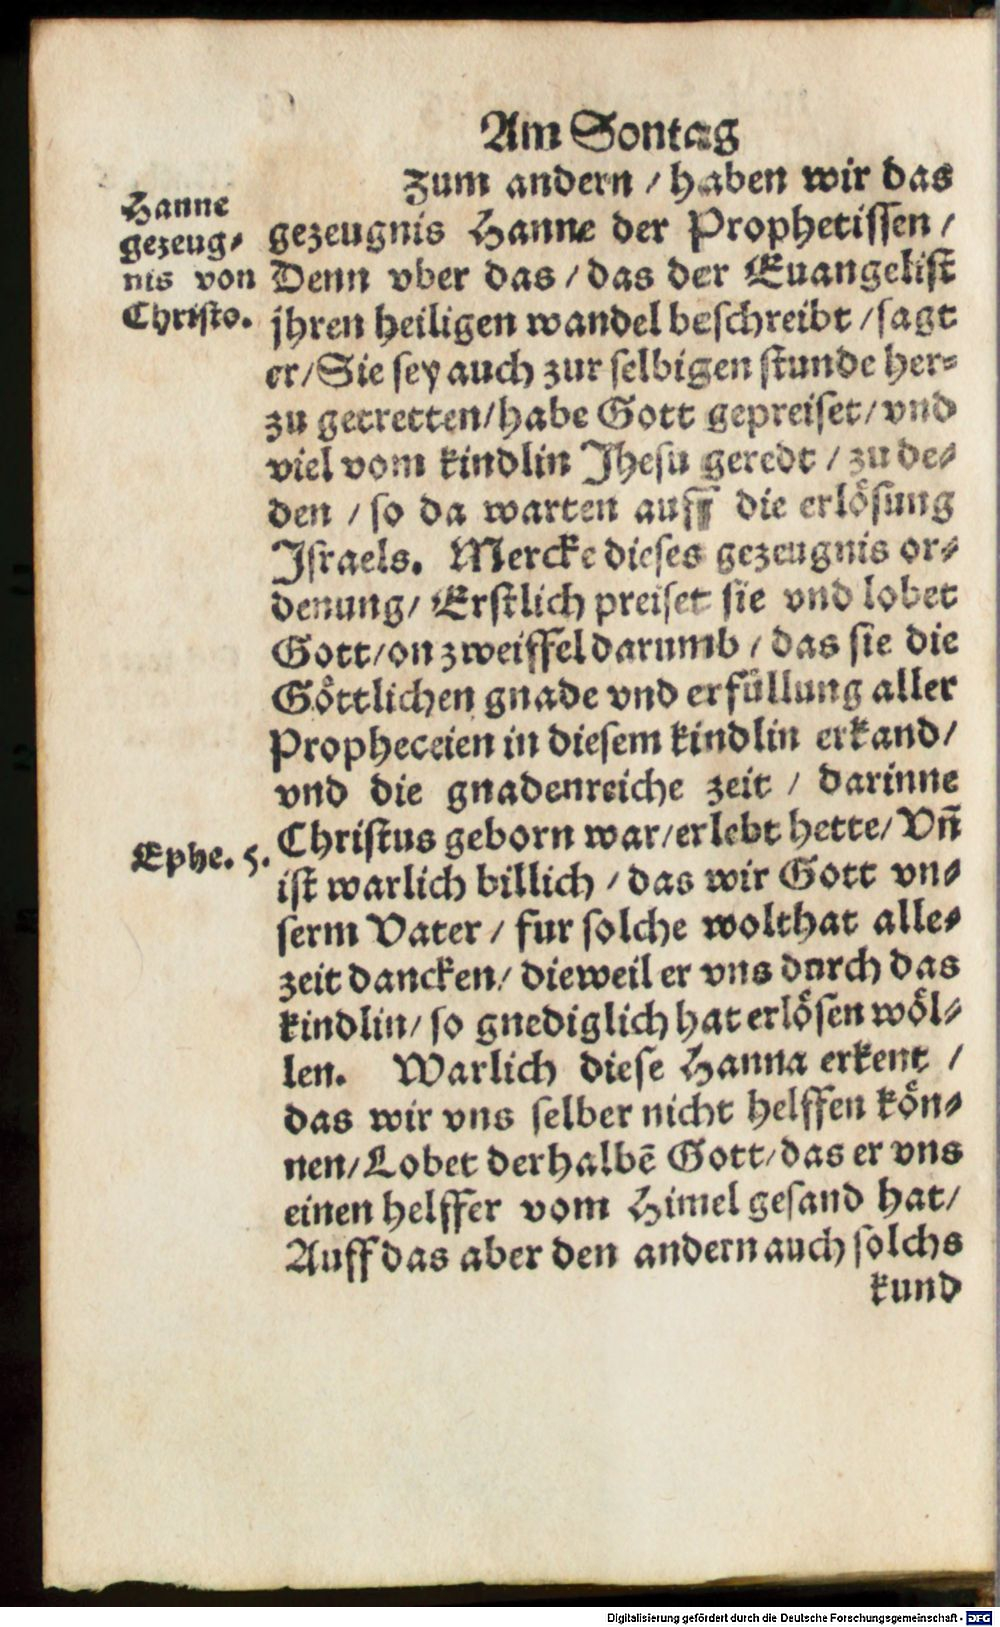 Am Sontag
Zum andern / haben wir das
Hanne
gezeug-
nis von
Christo.
gezeugnis Hanne der Prophetissen /
Denn vber das / das der Euangelist
jhren heiligen wandel beschreibt / sagt
er / Sie sey auch zur selbigen stunde her-
zu getretten / habe Gott gepreiset / vnd
viel vom kindlin Jhesu geredt / zu de-
den / so da warten auff die erlösung
Israels. Mercke dieses gezeugnis or-
denung / Erstlich preiset sie vnd lobet
Gott / on zweiffel darumb / das sie die
Göttlichen gnade vnd erfüllung aller
Propheceien in diesem kindlin erkand /
vnd die gnadenreiche zeit / darinne
Christus geborn war / erlebt hette / Vñ
Ephe. 5.
ist warlich billich / das wir Gott vn-
serm Vater / fur solche wolthat alle-
zeit dancken / dieweil er vns durch das
kindlin / so gnediglich hat erlösen wöl-
len. Warlich diese Hanna erkent /
das wir vns selber nicht helffen kön-
nen / Lobet derhalbē Gott / das er vns
einen helffer vom Himel gesand hat /
Auff das aber den andern auch solchs
kund
Digitalisierung gefördert durch die Deutsche Forschungsgemeinschaft - DFG